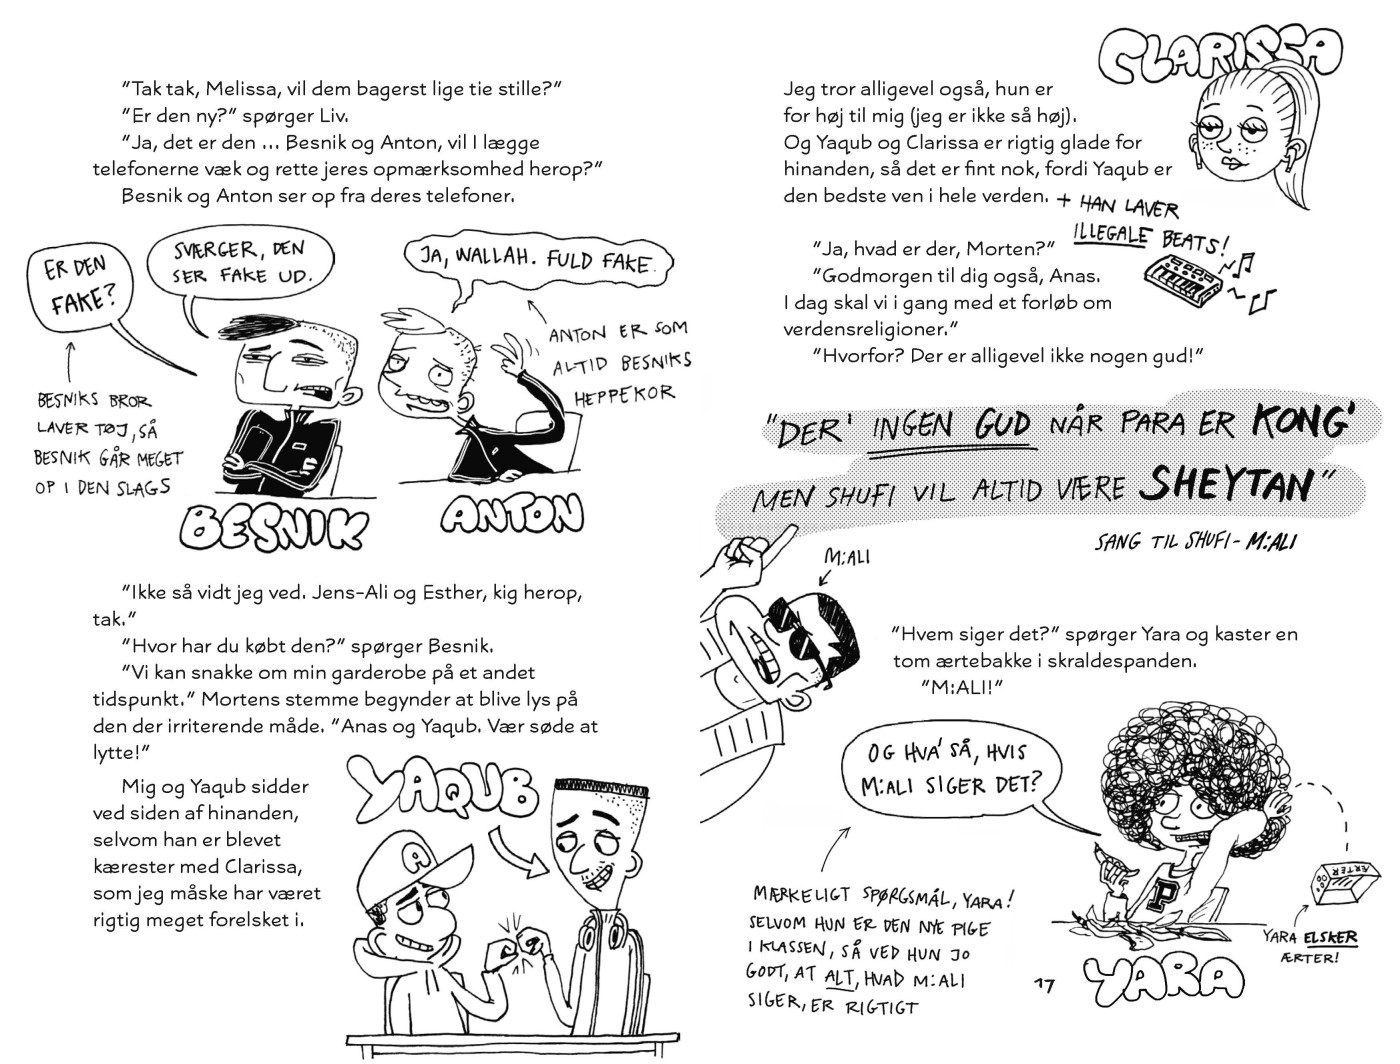 "Tak tak, Melissa, vil dem bagerst lige tie stille?"
"Er den ny?" spørger Liv.
"Ja, det er den ... Besnik og Anton, vil I lægge
telefonerne væk og rette jeres opmærksomhed herop?"
Besnik og Anton ser op fra deres telefoner.
ER DEN
FAKE?
SVÆRGER, DEN
SER FAKE UD.
JA, WALLAH. FULD FAKE.
ANTON ER SOM
ALTID BESNIKS
HEPPEKOR
BESNIKS BROR
LAVER TØJ, SÅ
BESNIK GÅR MEGET
OP I DEN SLAGS
BESNIK
ANTON
"Ikke så vidt jeg ved. Jens-Ali og Esther, kig herop,
tak."
"Hvor har du købt den?" spørger Besnik.
"Vi kan snakke om min garderobe på et andet
tidspunkt." Mortens stemme begynder at blive lys på
den der irriterende måde. "Anas og Yaqub. Vær søde at
lytte!"
Mig og Yaqub sidder
ved siden af hinanden,
selvom han er blevet
kærester med Clarissa,
som jeg måske har været
rigtig meget forelsket i.
YAQUB
A
CLARISSA
Jeg tror alligevel også, hun er
for høj til mig (jeg er ikke så høj).
Og Yaqub og Clarissa er rigtig glade for
hinanden, så det er fint nok, fordi Yaqub er
den bedste ven i hele verden.
+ HAN LAVER
ILLEGALE BEATS!
"Ja, hvad er der, Morten?"
"Godmorgen til dig også, Anas.
I dag skal vi i gang med et forløb om
verdensreligioner."
"Hvorfor? Der er alligevel ikke nogen gud!"
"DER' INGEN GUD NÅR PARA ER KONG'
MEN SHUFI VIL ALTID VÆRE SHEYTAN"
SANG TIL SHUFI - M:ALI
M:ALI
"Hvem siger det?" spørger Yara og kaster en
tom ærtebakke i skraldespanden.
"M:ALI!"
OG HVA' SÅ, HVIS
M:ALI SIGER DET?
MÆRKELIGT SPØRGSMÅL, YARA!
SELVOM HUN ER DEN NYE PIGE
I KLASSEN, SÅ VED HUN JO
GODT, AT ALT, HVAD M:ALI
SIGER, ER RIGTIGT
P
ÆRTER
YARA ELSKER
ÆRTER!
YARA
17